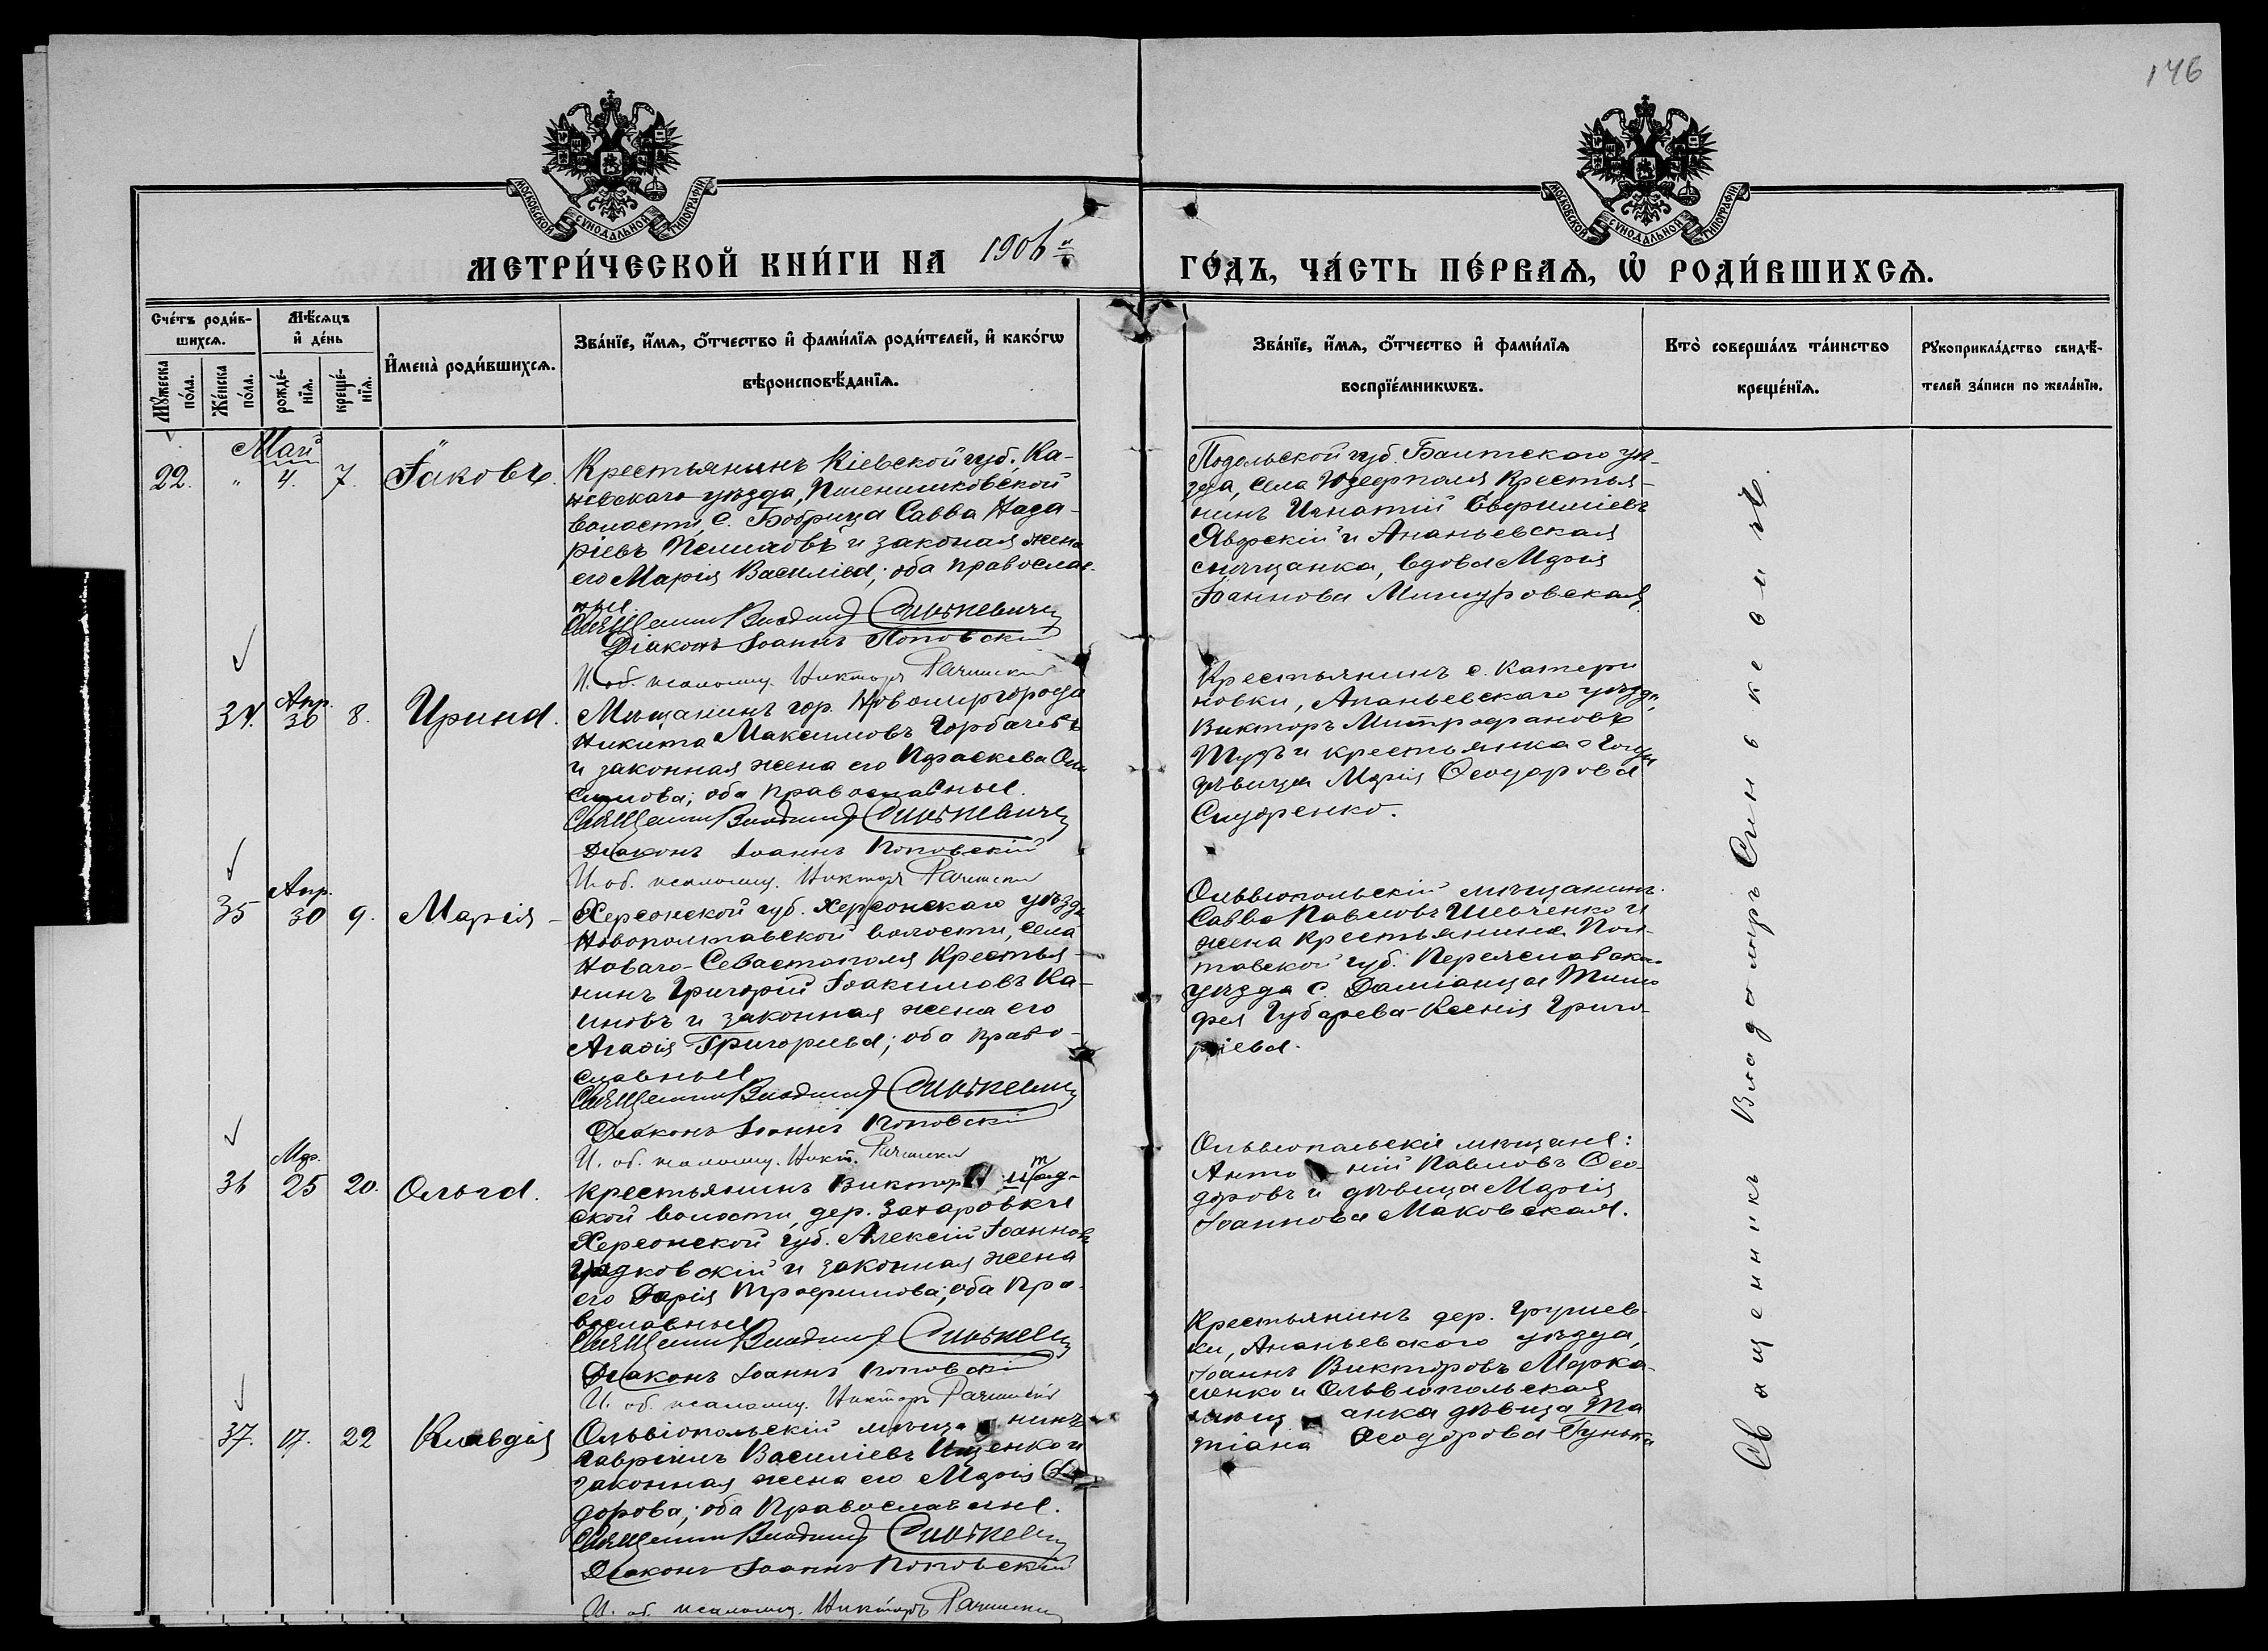 146
МОСКОВСКОЙ СУНОДАЛЬНОЙ ТИПОГРАФІИ
МОСКОВСКОЙ СУНОДАЛЬНОЙ ТИПОГРАФІИ
МЕТРИ́ЧЕСКОЙ КНИ́ГИ НА 1906 й
ГО́ДЪ, ЧА́СТЬ ПЕ́РВАѦ, Ѡ҆ РОДИ́ВШИХСѦ.
Сче́тъ роди́в-
шихсѧ.
Мꙋжеска по́ла.
Же́нска по́ла.
Мѣ́сѧцъ
и҆ де́нь
рожде́-
нїѧ.
креще́-
нїѧ.
И҆мена̀ роди́вшихсѧ.
Зва́нїе, и҆́мѧ, ѻ҆́тчество и҆ фами́лїѧ роди́телей, и҆ како́гѡ
вѣроисповѣ́данїѧ.
Зва́нїе, и҆́мѧ, ѻ҆́тчество и҆ фами́лїѧ
воспрїе́мникѡвъ.
Кто̀ соверша́лъ та́инство
креще́нїѧ.
Рꙋкоприкла́дство свидѣ́-
телей за́писи по жела́нїю.
Май
22. " 4. 7. Іаковъ.
Крестьянинъ Кіевской губ. Ка-
невскаго уѣзда, Пшениковской
волости, с. Бобрица Савва Наза-
ріевъ и законая жена
его Марія Василіева; оба православ-
ные.
Священникъ Владимір Синькевичъ
Діаконъ Іоаннъ Поповскій
И. об. псаломщ. Викторъ
Подольской губ. Балтскаго уѣ-
зда, села Юзефполя крестья-
нинъ Игнатій Евфиміевъ
Яворскій и Ананьевская
мѣщанка, вдова Марія
Іоаннова
34. Апр. 30 8. Ирина.
Мѣщанинъ гор. Новомиргорода
Никита Максимовъ Горбачевъ
и законная жена его Параскева Они
симова; оба православные.
Священникъ Владимір Синькевичъ
Діаконъ Іоаннъ Поповскій
И. об. псаломщ. Викторъ
Крестьянинъ с. Катери
новки, Ананьевскаго уѣзда,
Викторъ Митрофановъ
и крестьянка
дѣвица Марія Ѳеодорова
Сидоренко.
35 Апр. 30 9. Марія -
Херсонской губ. Херсонскаго уѣзда
Новополтавской волости, села
Новаго-Севастополя крестья-
нинъ Григорій Іоакимовъ Ка-
иновъ и законная жена его
Агафія Григорьева; оба право-
славные
Священникъ Владимір Синькевичъ
Діаконъ Іоаннъ Поповскій
И. об. псаломщ. Викт.
Ольвіопольскій мѣщанинъ
Савва Павловъ Шевченко и
жена крестьянина Пол-
тавской губ. Переяславска
уѣзда с. Даміанца Тимо
фея Губарева Ксенія Григо-
ріева.
36 Мар. 25 20. Ольга.
Крестьянинъ Виктор штад-
ской волости, дер. Захаровки
Херсонской губ. Алексій Іоанновъ
Градковскій и законная жена
его Дарія Трофимова; оба пра-
вославные
Священникъ Владимір Синькевичъ
Діаконъ Іоаннъ Поповскій
И. об. псаломщ. Викторъ
Ольвіопольскіе мѣщане:
Анто ній Павловъ Ѳео-
доровъ и дѣвица Марія
Іоаннова Маковская.
37. 17. 22 Клавдія
Ольвіопольскій мѣща нинъ
Гавріилъ Василіевъ Ищенко и
законная жена его Марія Ѳео
дорова; оба православные.
Священникъ Владимір Синькевичъ
Діаконъ Іоаннъ Поповскій
И. об. псаломщ. Викторъ
Крестьянинъ дер. Грушев-
ки, Ананьевского уѣзда,
Іоаннъ Викторовъ Марка-
ленко и Ольвіопольская
мѣщ анка дѣвица Та
тіана Ѳеодорова Гунька
Священникъ Владиміръ Синькевичъ